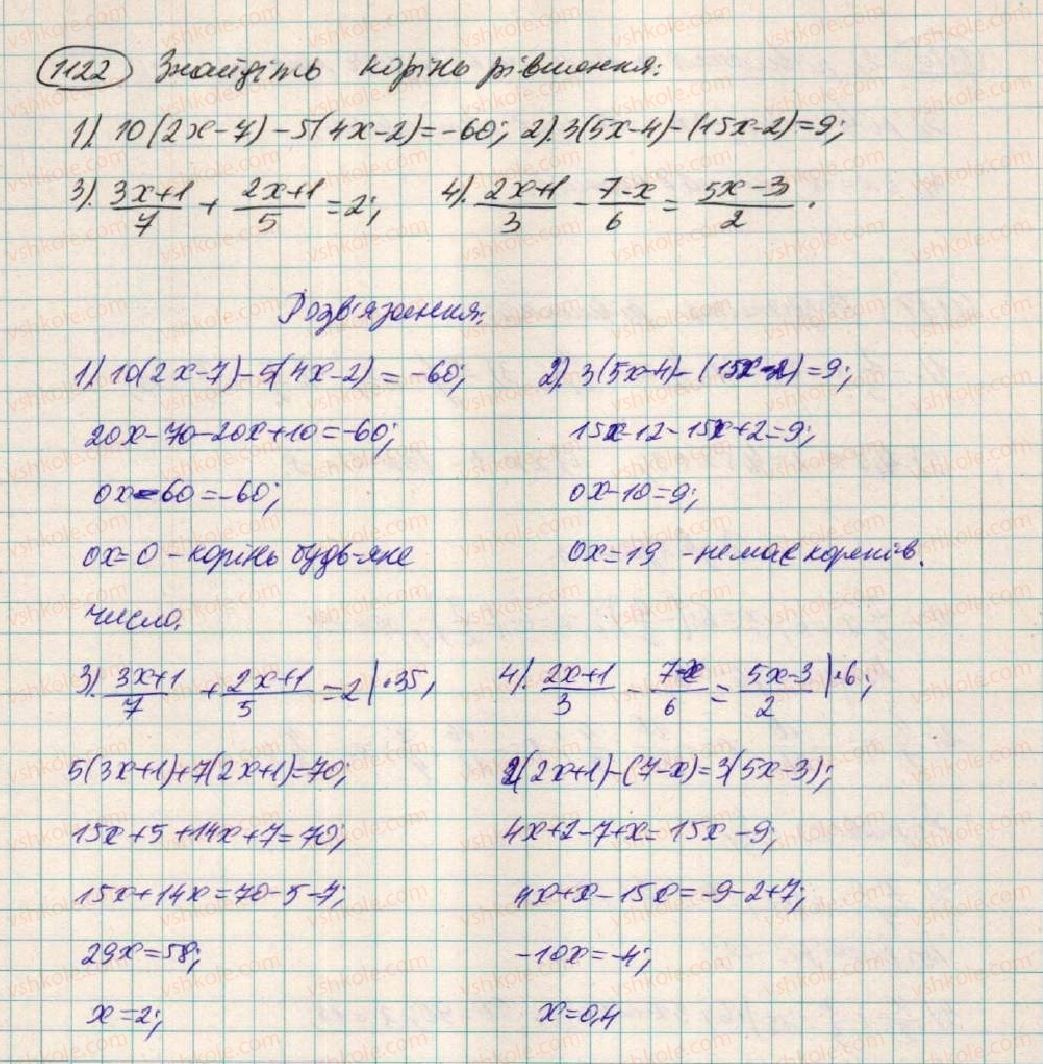 1122 Знайдіть корінь рівняння:
1). 10(2x-7)-5(4x-2)=-60; 2). 3(5x-4)-(15x-2)=9;
3). (3x+1)/7 + (2x+1)/5 = 2; 4). (2x+1)/3 - (7-x)/6 = (5x-3)/2.
Розв'язання:
1). 10(2x-7)-5(4x-2)=-60;
20x-70-20x+10=-60;
0x-60=-60;
0x=0 - корінь будь-яке
число.
2). 3(5x-4)-(15x-2)=9;
15x-12-15x+2=9;
0x-10=9;
0x=19 - немає коренів.
3). (3x+1)/7 + (2x+1)/5 = 2 |·35;
5(3x+1)+7(2x+1)=70;
15x+5+14x+7=70;
15x+14x=70-5-7;
29x=58;
x=2;
4). (2x+1)/3 - (7-x)/6 = (5x-3)/2 |·6;
2(2x+1)-(7-x)=3(5x-3);
4x+2-7+x=15x-9;
4x+x-15x=-9-2+7;
-10x=-4;
x=0,4
vshkole.com